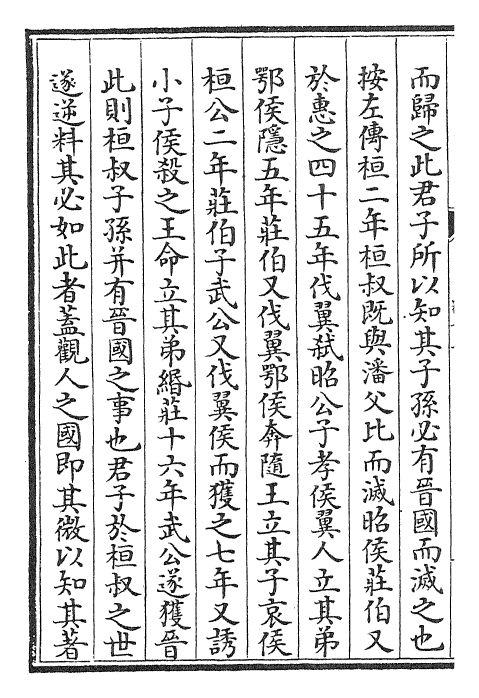 而歸之此君子所以知其子孫必有晉國而滅之也
按左傳桓二年桓叔既與潘父比而滅昭侯莊伯又
於惠之四十五年伐翼弑昭公子孝侯翼人立其弟
鄂侯隱五年莊伯又伐翼鄂侯奔隨王立其子哀侯
桓公二年莊伯子武公又伐翼侯而獲之七年又誘
小子侯殺之王命立其弟緡莊十六年武公遂獲晉
此則桓叔子孫并有晉國之事也君子於桓叔之世
遂逆料其必如此者蓋觀人之國即其微以知其著